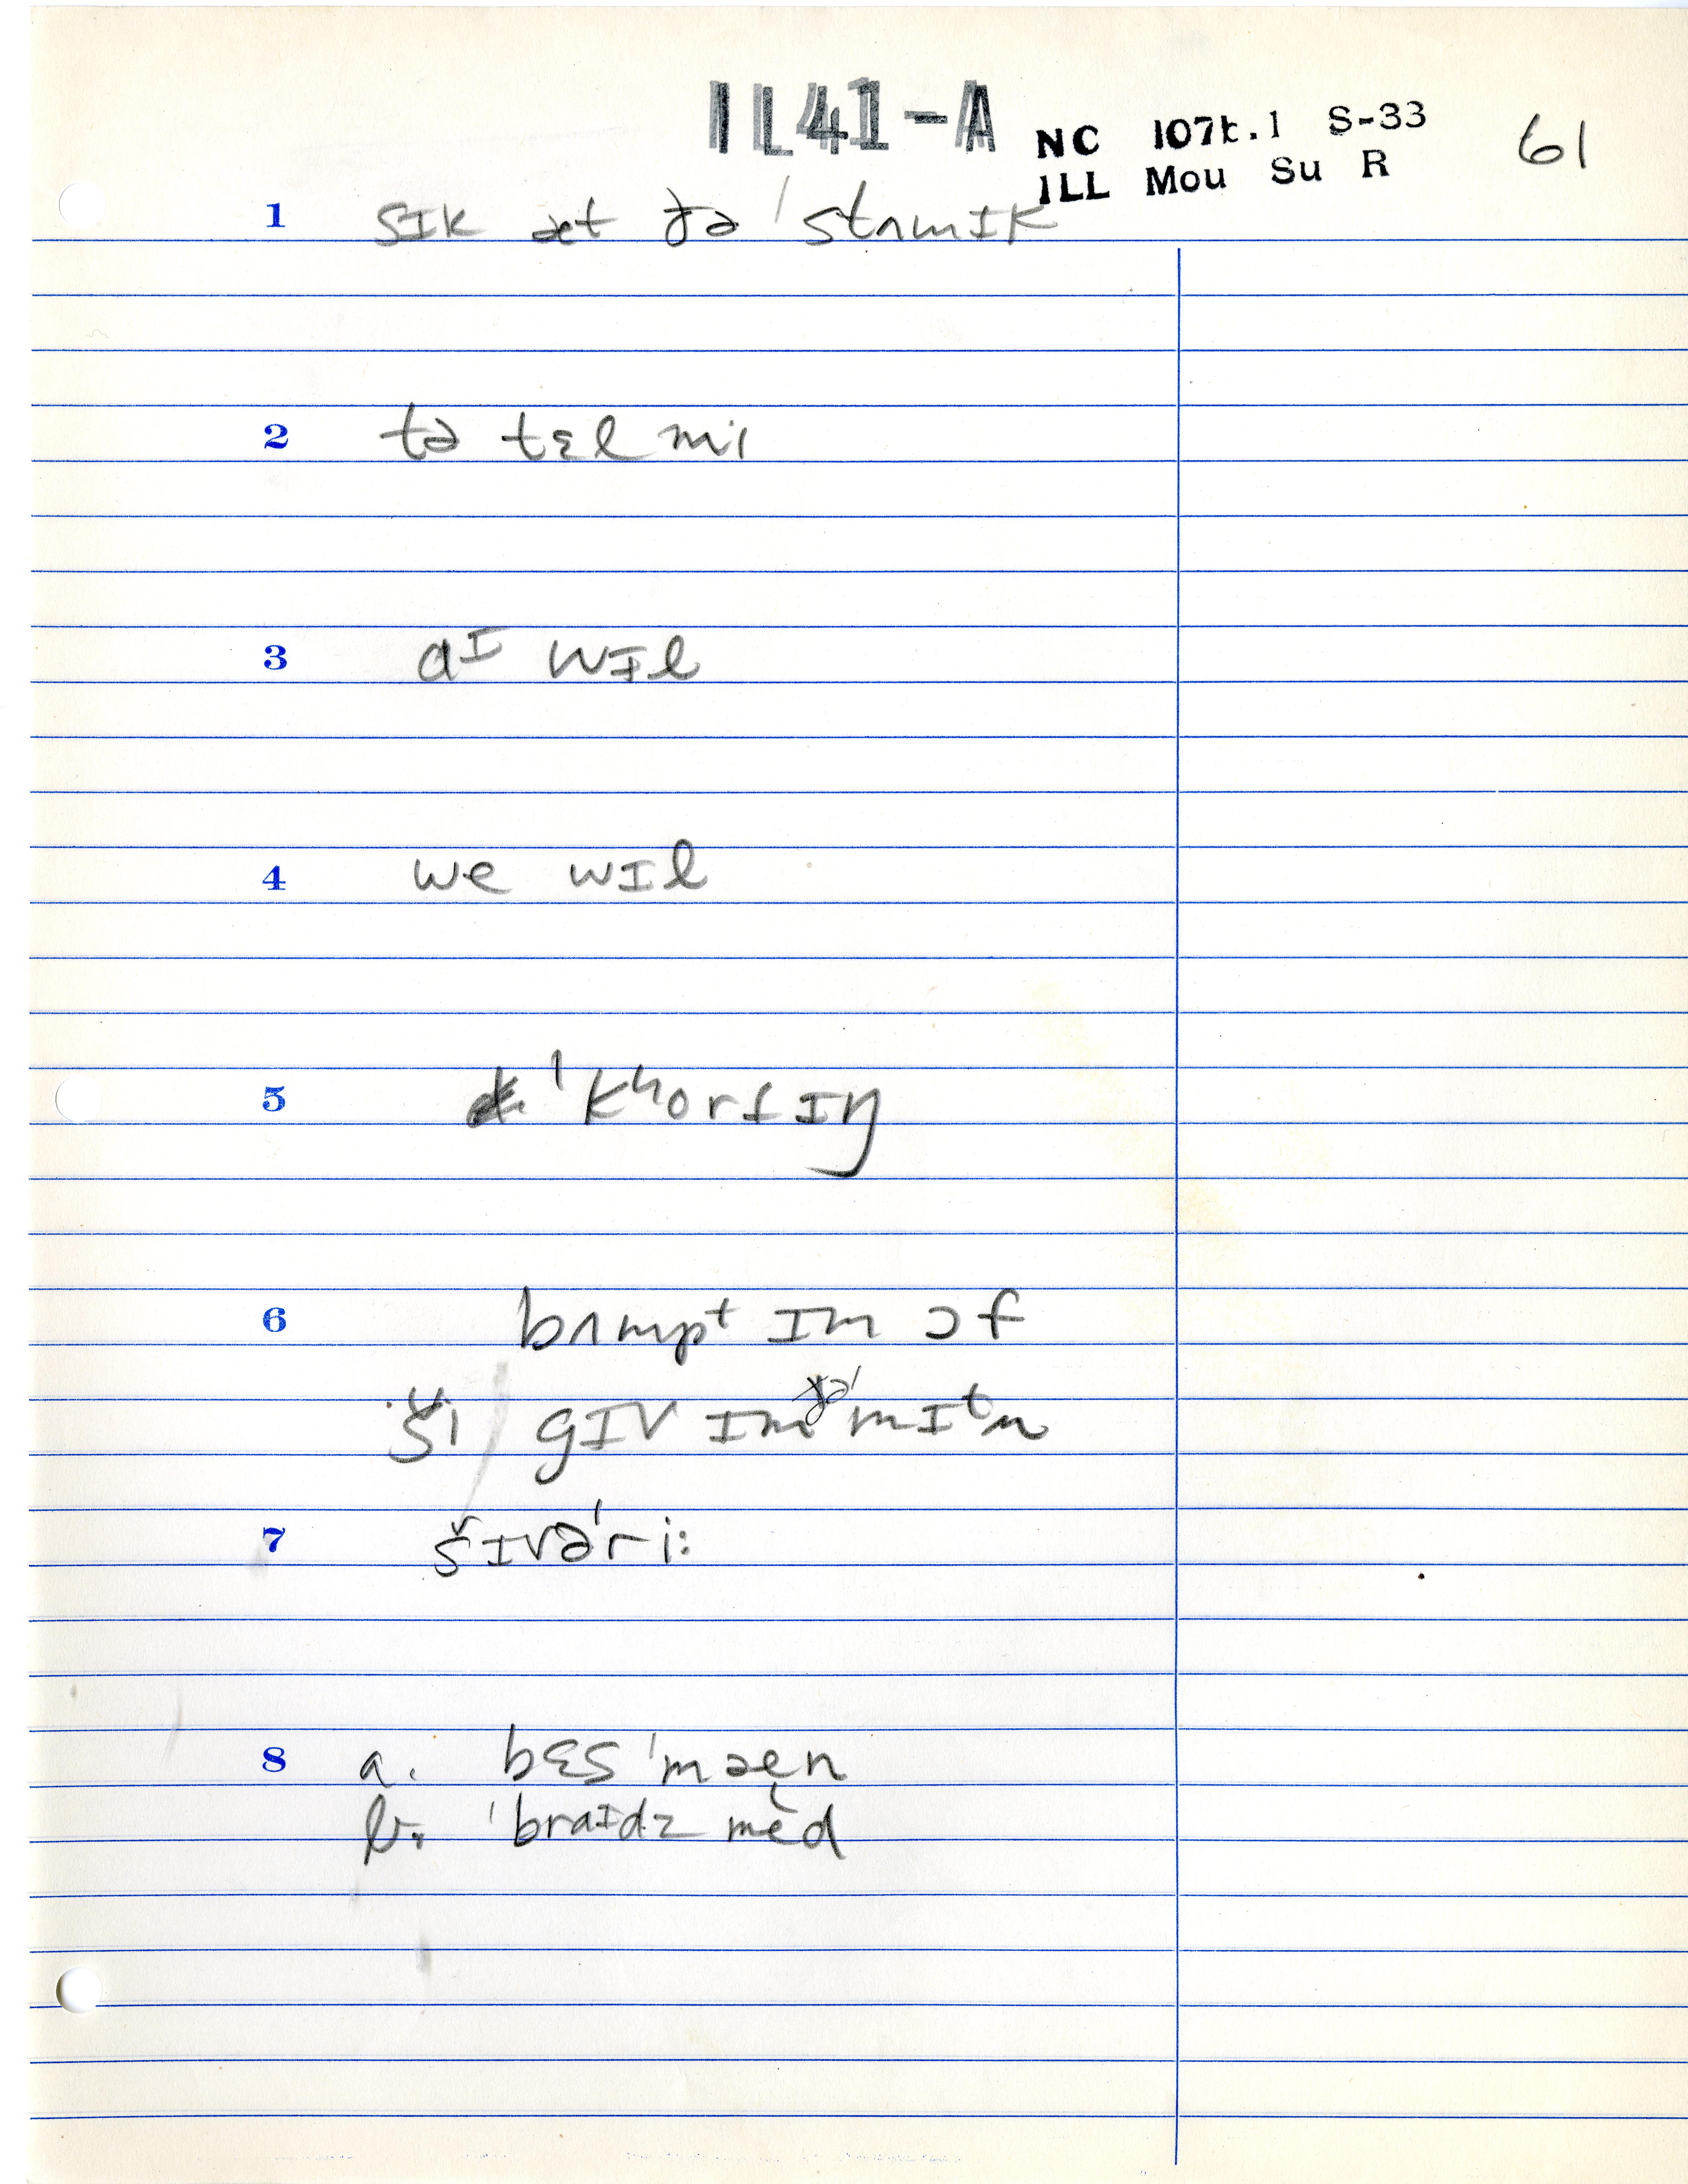 IL41-A
NC 107t.1 S-33
ILL Mou Su R
61
1 sɪk æt ðə ˈstʌmɪk
2 tə tɛl mi
3 aᴵ wɪl
4 we wɪl
5 ˈkʰorfɪŋ
6 bʌmpᵗ ɪm ɔf
ši gɪv ɪm ðə ˈmɪᵗn
7 šɪvəˈri:
8 a. bɛs ˈmæn
b. ˈbraɪdz mèd